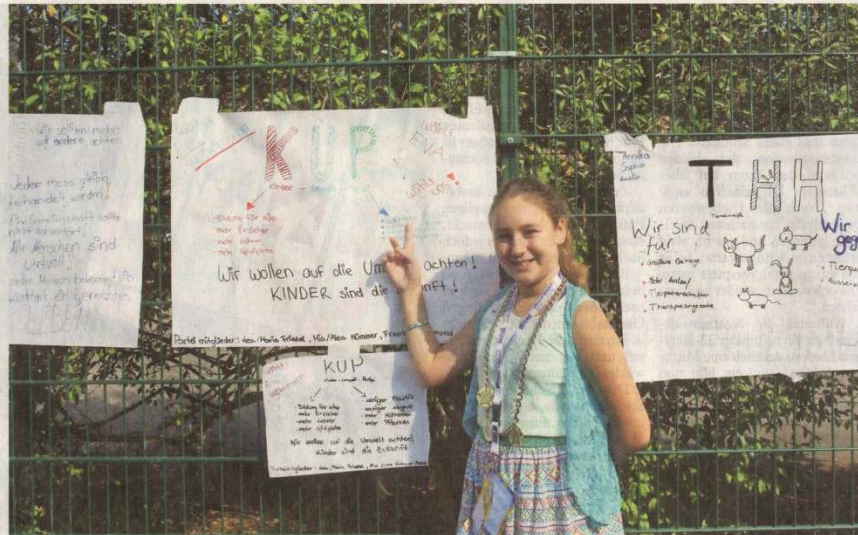 Wir sollten mehr
auf andere achten
Jeder muss gleich
behandelt werden!
Alle Menschen sind
wertvoll!
ein gerechtes
LEBEN
KUP
Kinder
EVA
wählt
uns!
Bildung für alle
mehr Erzieher
mehr Lehrer
mehr Spielplätze
Wir wollen auf die Um achten!
KINDER sind die unft!
Partei mitglieder: Lea/Maria Friedel, Mia/Alea Hümmer, Fran mund
KUP
Kinder-Umwelt-Partei
Bildung für alle
mehr Erzieher
mehr Lehrer
mehr Spielplätze
weniger Plastik
weniger Abgase
mehr
mehr Pflanzen
Wir wollen auf die Umwelt achten!
Kinder sind die Zukunft
Annika
Sophia
Amelie
THH
Wir sind
für
Größere Gehege
Mehr Auslauf
Tierpatenschaften
Therapieangebote
Wir
geg
Tierqu
Ausse